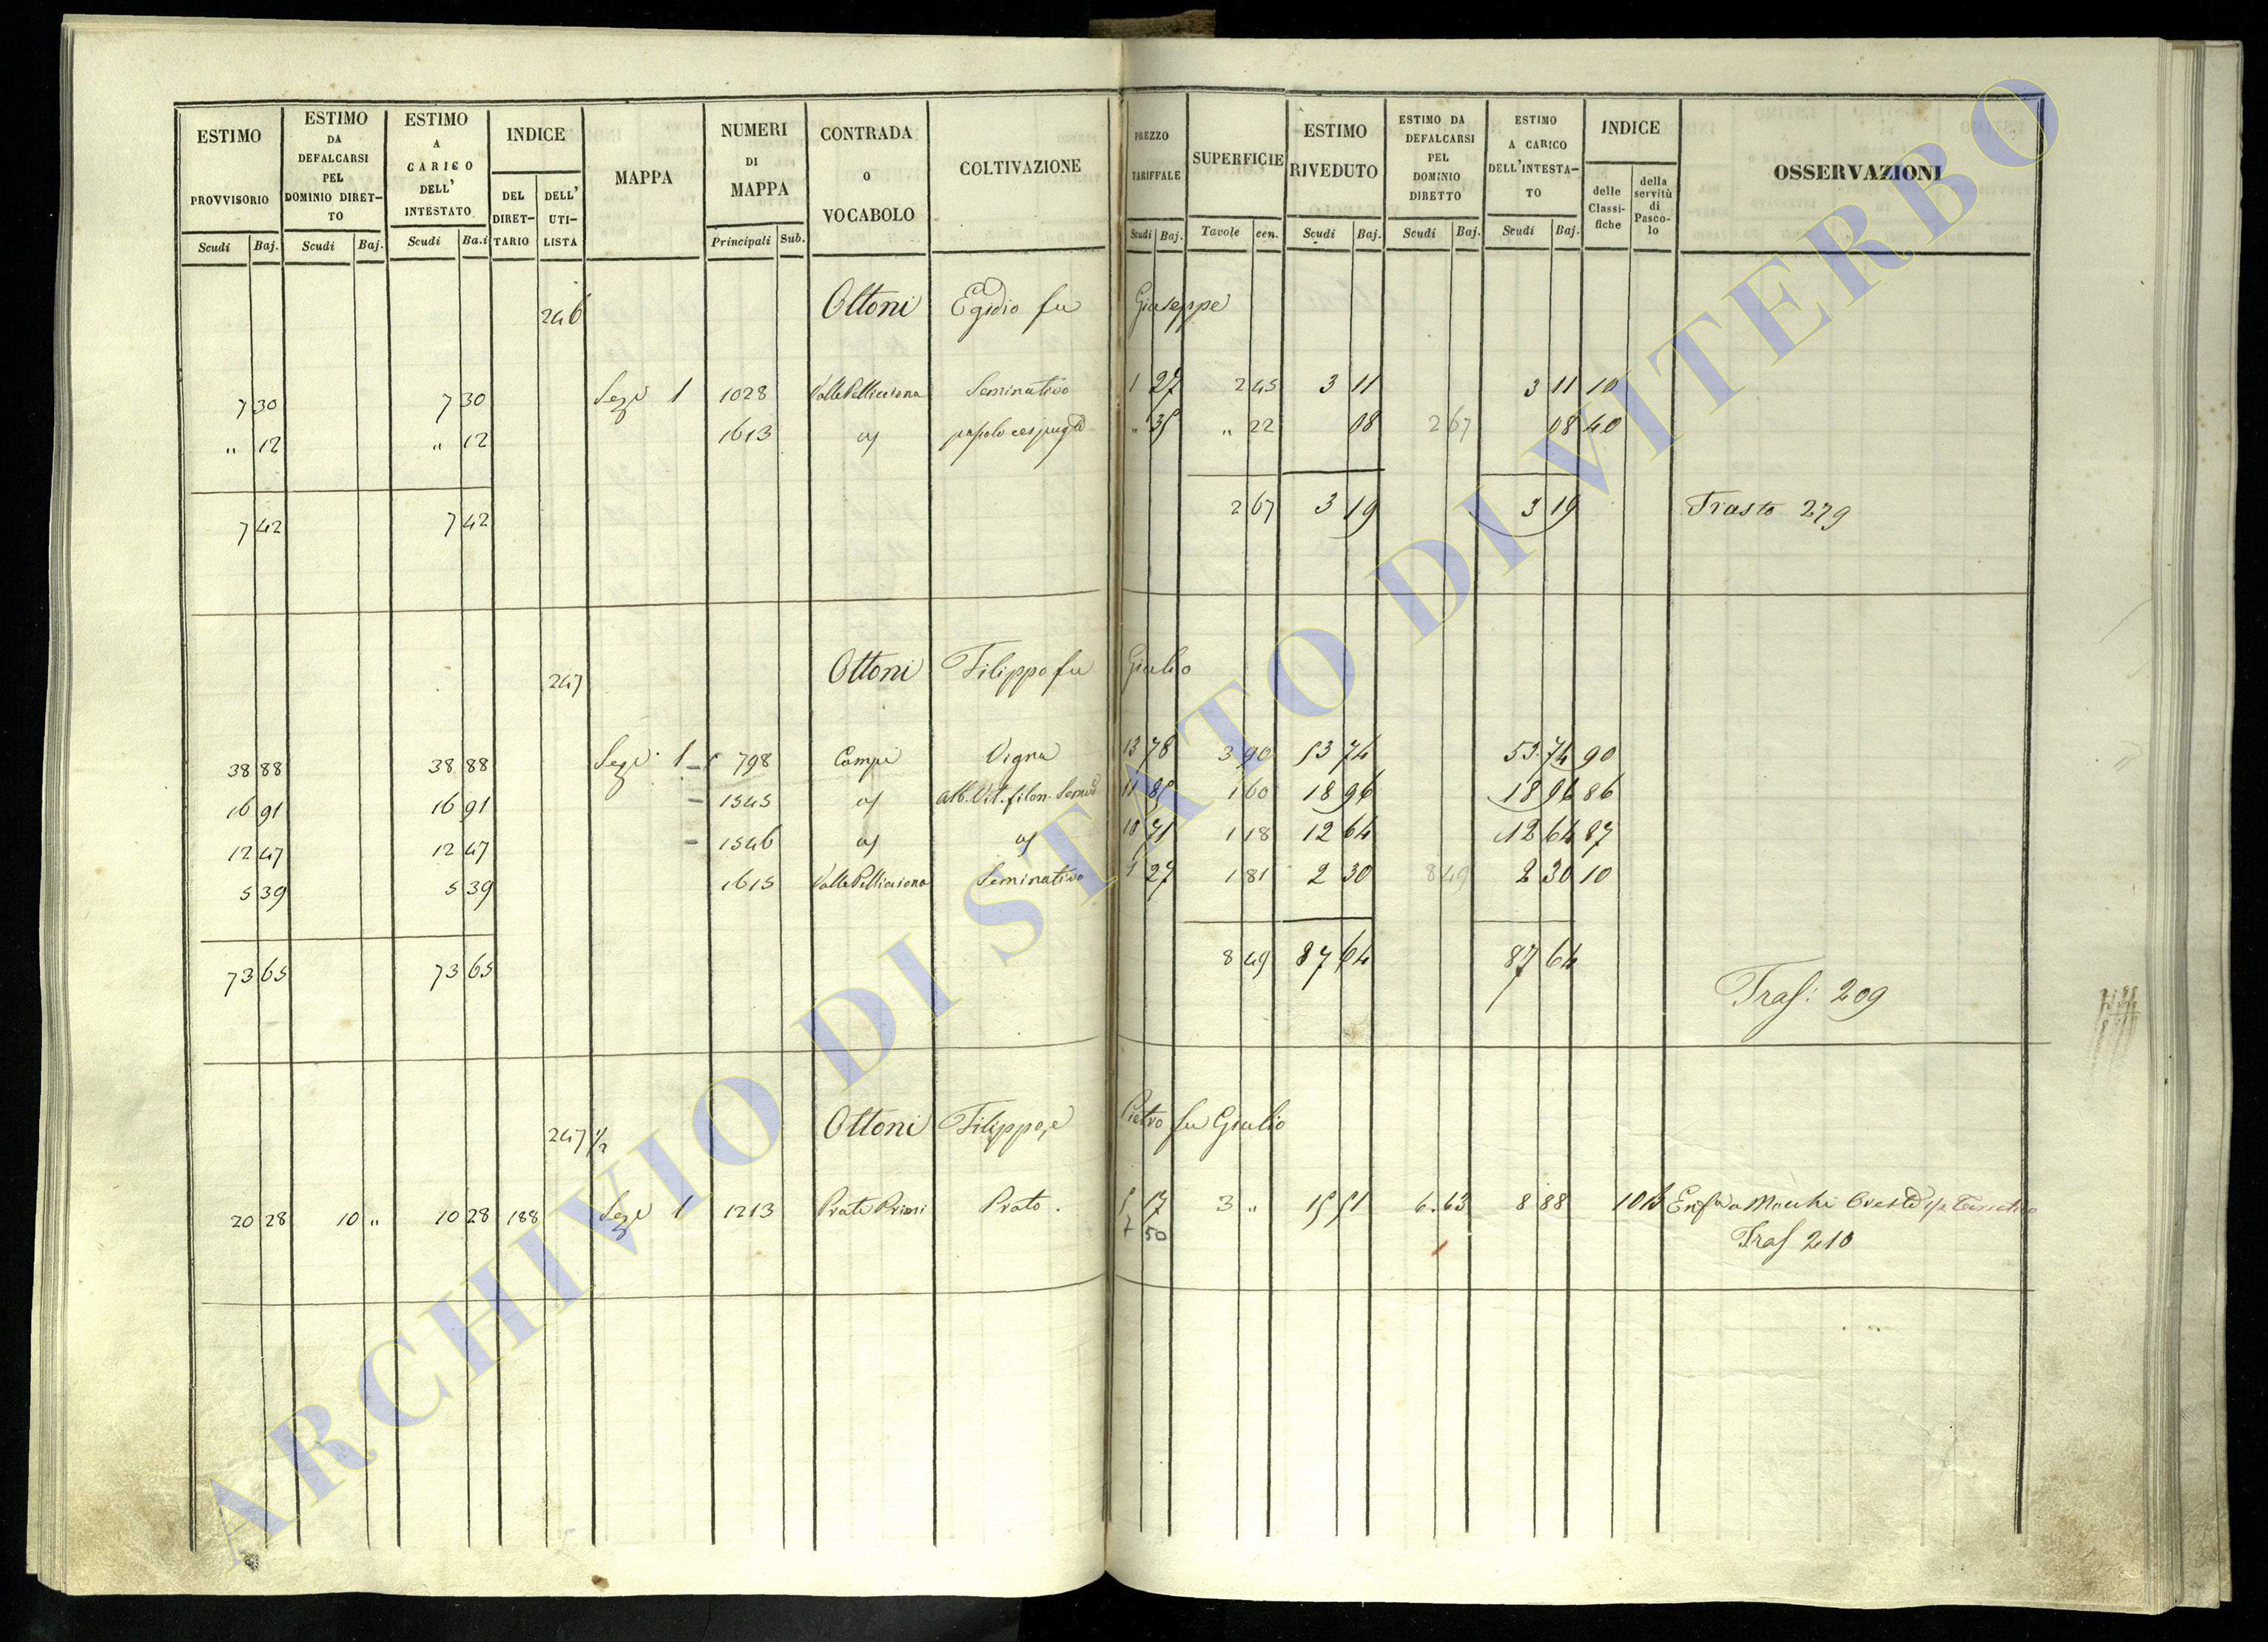 ESTIMO PROVVISORIO Scudi Baj. ESTIMO DA DEFALCARSI PEL DOMINIO DIRETTO Scudi Baj. ESTIMO A CARICO DELL' INTESTATO Scudi Ba.i INDICE DEL DIRETTARIO DELL' UTILISTA MAPPA NUMERI DI MAPPA Principali Sub. CONTRADA O VOCABOLO COLTIVAZIONE PREZZO TARIFFALE Scudi Baj. SUPERFICIE Tavole cen. ESTIMO RIVEDUTO Scudi Baj. ESTIMO DA DEFALCARSI PEL DOMINIO DIRETTO Scudi Baj. ESTIMO A CARICO DELL'INTESTATO Scudi Baj. INDICE delle Classifiche della servitù di Pascolo OSSERVAZIONI
246 Ottoni Egidio fu Giuseppe
7 30 7 30 Sezе 1 1028 Valle Pelliciona Seminativo 1 27 2 45 3 11 3 11 10
" 12 " 12 1613 " 35 " 22 08 2 67 08 40
7 42 7 42 2 67 3 19 3 19 Trasto 279
247 Ottoni Filippo fu Giulio
38 88 38 88 Seze 1 798 Campi Vigna 13 78 3 90 53 74 53 74 90
16 91 16 91 1545 Alb. Vit. filon. Semvo 11 85 1 60 18 96 18 96 86
12 47 12 47 1546 10 71 1 18 12 64 12 64 87
5 39 5 39 1615 Valle Pelliciona Seminativo 1 27 1 81 2 30 8 49 2 30 10
73 65 73 65 8 49 87 64 87 64
Tras: 209
247 1/2 Ottoni Filippo, e Pietro fu Giulio
20 28 10 " 10 28 188 Seze 1 1213 Prati Primi Prato. 5 17 3 " 15 51 6.63 8 88 101
7 50 Tras 210
ARCHIVIO DI STATO DI VITERBO